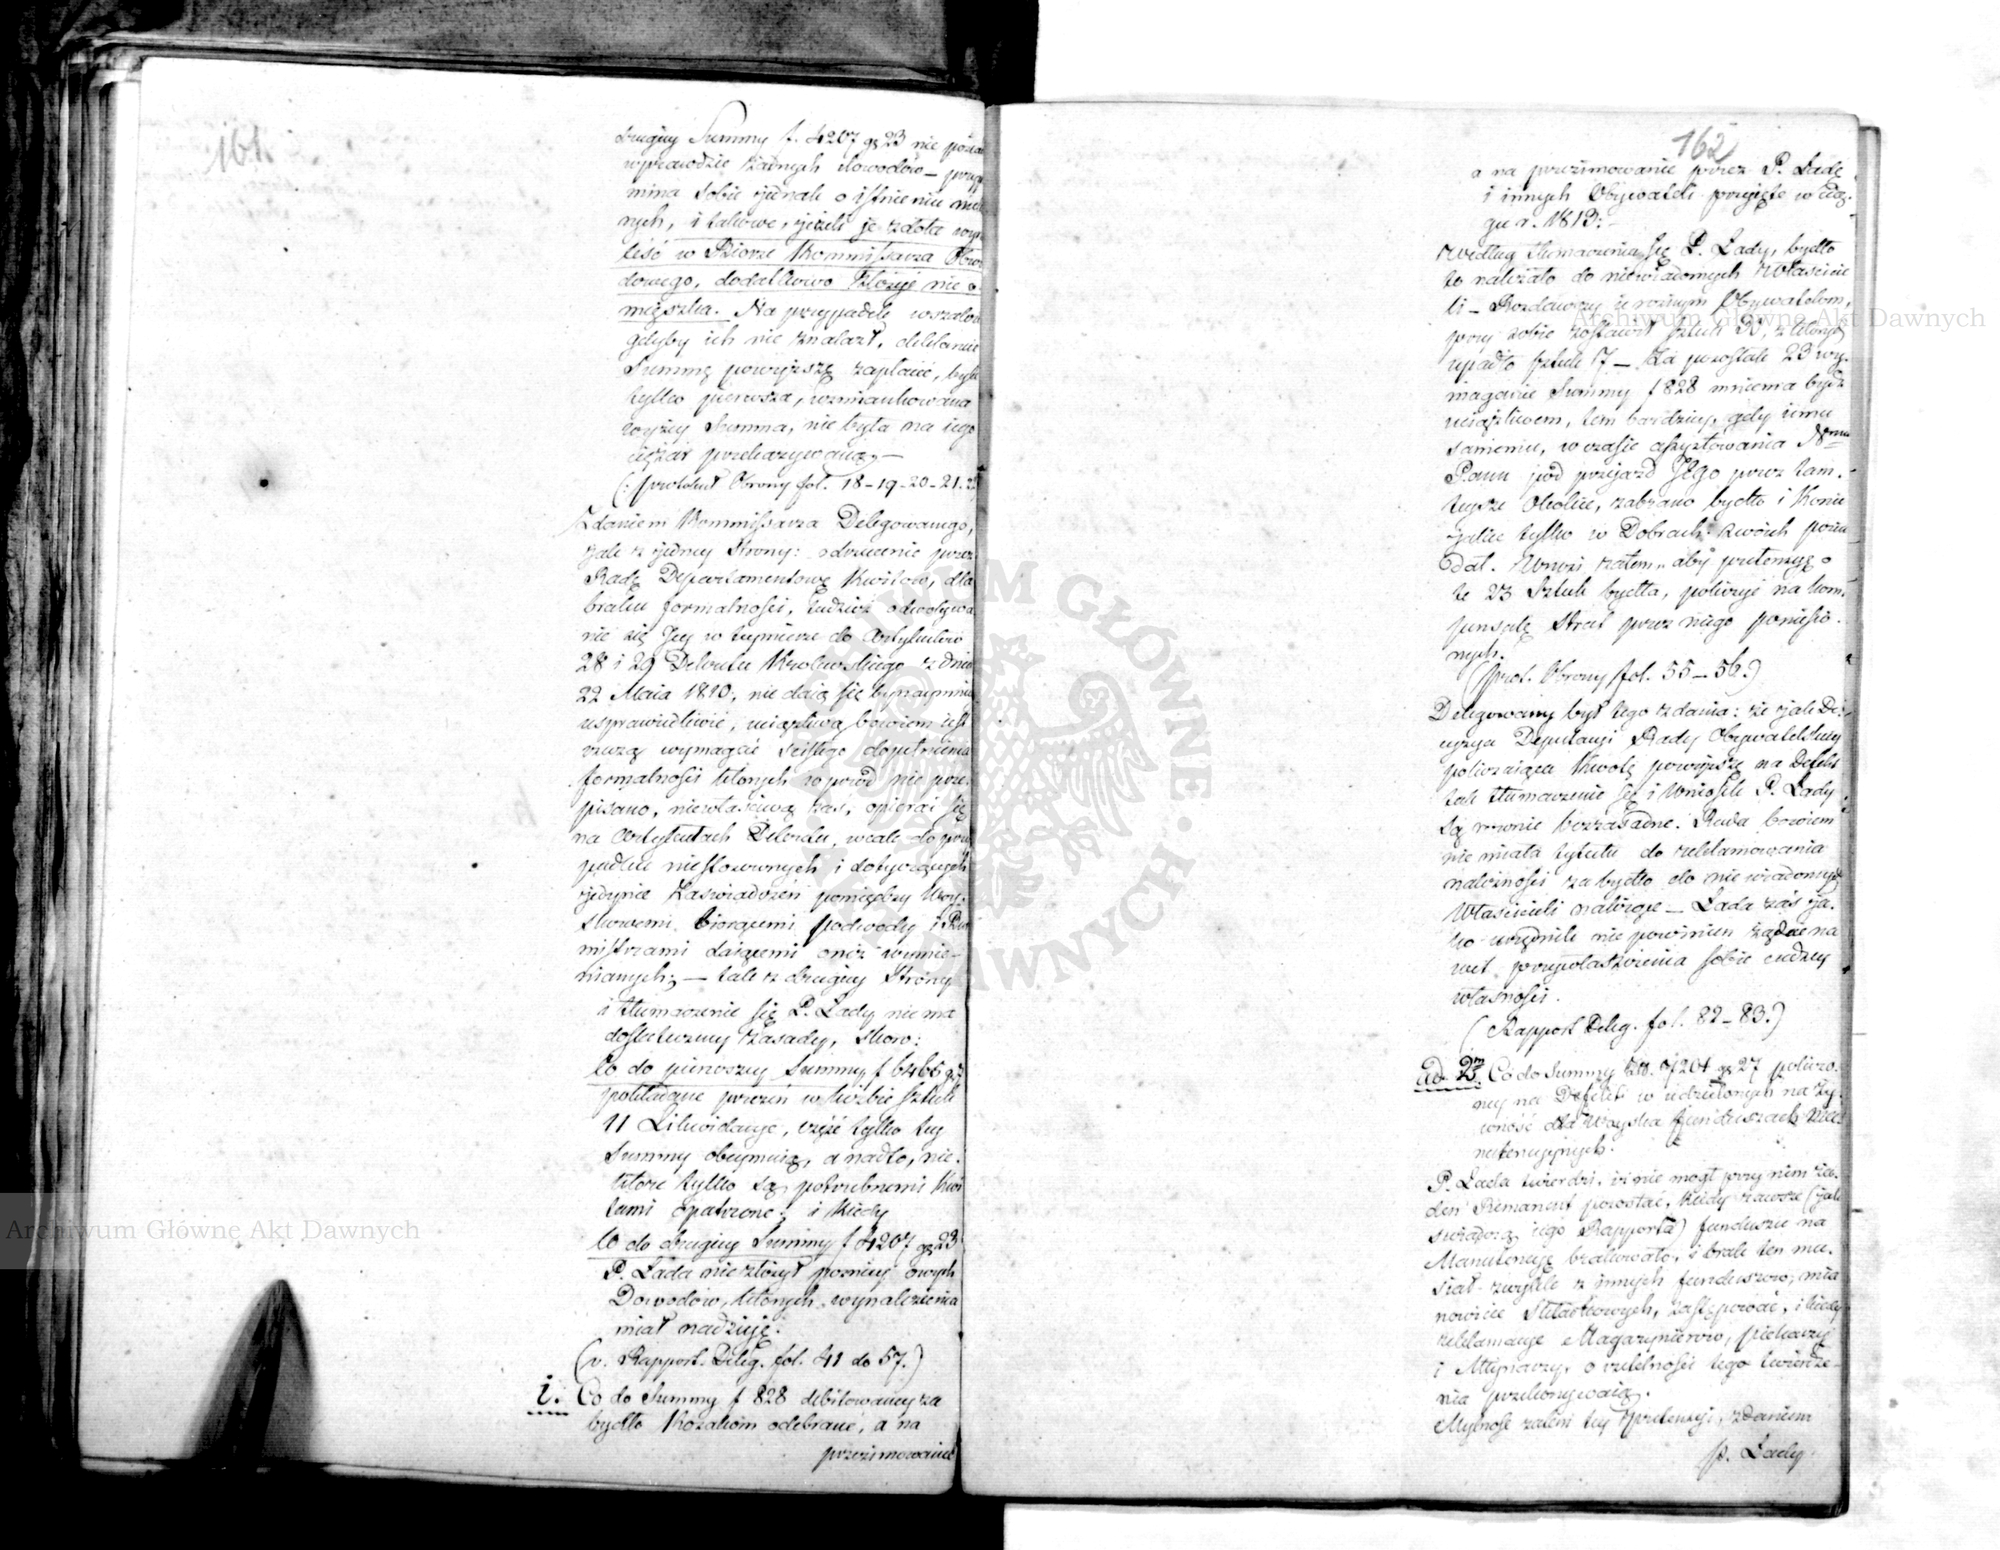 161.
drugiey Summy f. 4207 gr 23 nie
wprawdzie żadnych dowodów –
mina sobie iednak o istnieniu
nych, i takowe, ieżeli je zdoła
leść w Biorze Kommissarza
dowego, dodatkowo złożyć nie o
mięszka. Na przypadek wszakże
gdyby ich nie znalazł,
Summę powyższą zapłacić, byle
tylko pierwsza, wzmiankowana
wyżey Summa, nie była na iego
ciężar przekazywaną, –
(: protokuł Obrony fol. 18 – 19 – 20 – 21.
Zdaniem Kommissarza Delegowanego,
jak z jedney Strony: odrzucenie przez
Radę Departamentową Kwitów, dla
braku formalności, tudzież odwoływa
nie się Jey w teymierze do Artykułów
28 i 29 Dekretu Królewskiego z dnia
22 Maia 1810, nie daią się bynaymniey
usprawiedliwić, uciążliwą bowiem iest
rzeczą wymagać ścisłego dopełnienia
formalności których wprzód nie prze-
pisano, niewłaściwą zaś, opierać się
na Artykułach Dekretu, wcale do przy
padku niestosownych i dotyczących
jedynie Zaświadczeń pomiędzy Woy-
skowemi biorącemi podwody i
mistrzami daiącemi onéż wymie-
nianych; – tak z drugiey Strony
i tłumaczenie się P. Łady nie ma
dostateczney zasady, skoro:
Co do pierwszey Summy f 6466 gr
pokładane przezeń w liczbie sztuk
11 Likwidacye, część tylko tey
Summy obeymuią, a nadto, nie-
które tylko są potrzebnemi Kwi
tami opatrzone; i kiedy
Co do drugiey Summy f 4207 gr 23
P. Łada nie złożył pozniey owych
Dowodów, których wynalezienia
miał nadzieję.
(v. Rapport. Deleg. fol. 41 do 57.)
i. Co do Summy f 828 debitowaney za
bydło Kozakom odebrane, a na
przezimowanie
162
a na przezimowanie przez P. Ładę
i innych Obywateli przyjęte w cią-
gu r. 1813: –
Według tłumaczenia się P. Łady, bydło
to należało do niewiadomych Właścicie
li – Rozdawszy je różnym Obywatelom,
przy sobie zostawił sztuk 30, z których
upadło sztuk 7 – Za pozostałe 23 wy-
maganie Summy f 828 mniema bydź
uciążliwem, tem bardziey, gdy iemu
samemu, w czasie assystowania
Panu pod przejazd Jego przez tam-
teysze Okolice, zabrano bydło i Konie
jakie tylko w Dobrach swoich posia
dał. Wnosi zatem, aby pretensyę o
te 23 Sztuk bydła, policzyć na kom-
pensatę Strat przez niego poniesio-
nych.
(prot. Obrony fol. 55 – 56.)
Delegowany był tego zdania: że jak De-
cyzya Deputacyi Rady Obywatelskiey
policzaiąca Kwotę powyższą na Defekt
tak tłumaczenie się i Wniosek P. Łady
są równie bezzasadne. Rada bowiem
nie miała tytułu do reklamowania
należności za bydło do niewiadomych
Właścicieli należące – Łada zaś ja-
ko urzędnik nie powinien żądać na
wet przywłaszczenia sobie cudzey
własności.
(Rapport Deleg. fol. 82 – 83.)
ad 2m. Co do Summy Zł. 9204 gr 27 policzo-
ney na Defekt w udzielonych na Ży-
wność dla Woyska funduszach Ma-
nutencyjnych.
P. Łada twierdzi, iż nie mógł przy nim ża-
den Remanent pozostać, kiedy zawsze (jak
świadczą iego Rapporta) funduszu na
Manutencyę brakowało, i brak ten mu-
siał zwykle z innych funduszów, mia
nowicie Składkowych, zastępować, i kiedy
reklamacye Magazynierów, piekarzy
i Młynarzy, o rzetelności tego twierdze-
nia przekonywaią.
Mylność zatem tey pretensyi, zdaniem
P. Łady
Archiwum Główne Akt Dawnych
Archiwum Główne Akt Dawnych
ARCHIWUM GŁÓWNE AKT DAWNYCH